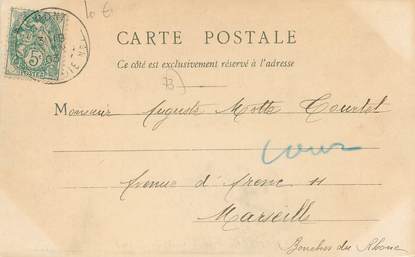 10 €
CARTE POSTALE
Ce côté est exclusivement réservé à l'adresse
Monsieur Auguste Motte Courtet
Cour
Avenue d'Arenc 11
Marseille
Bouches du Rhone